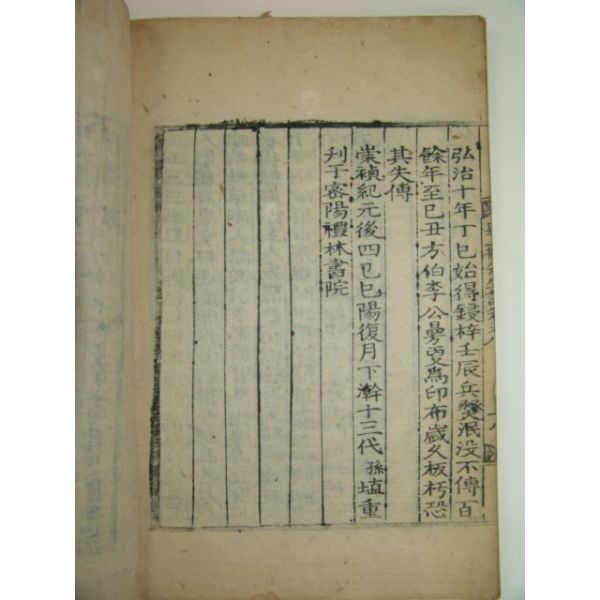 弘治十年丁巳始得鋟梓壬辰兵燹泯没不傳百
餘年至己丑方伯李公曼更爲印布歲久板朽恐
其失傳
崇禎紀元後四己巳陽復月下澣十三代孫埴重
刋于密陽禮林書院